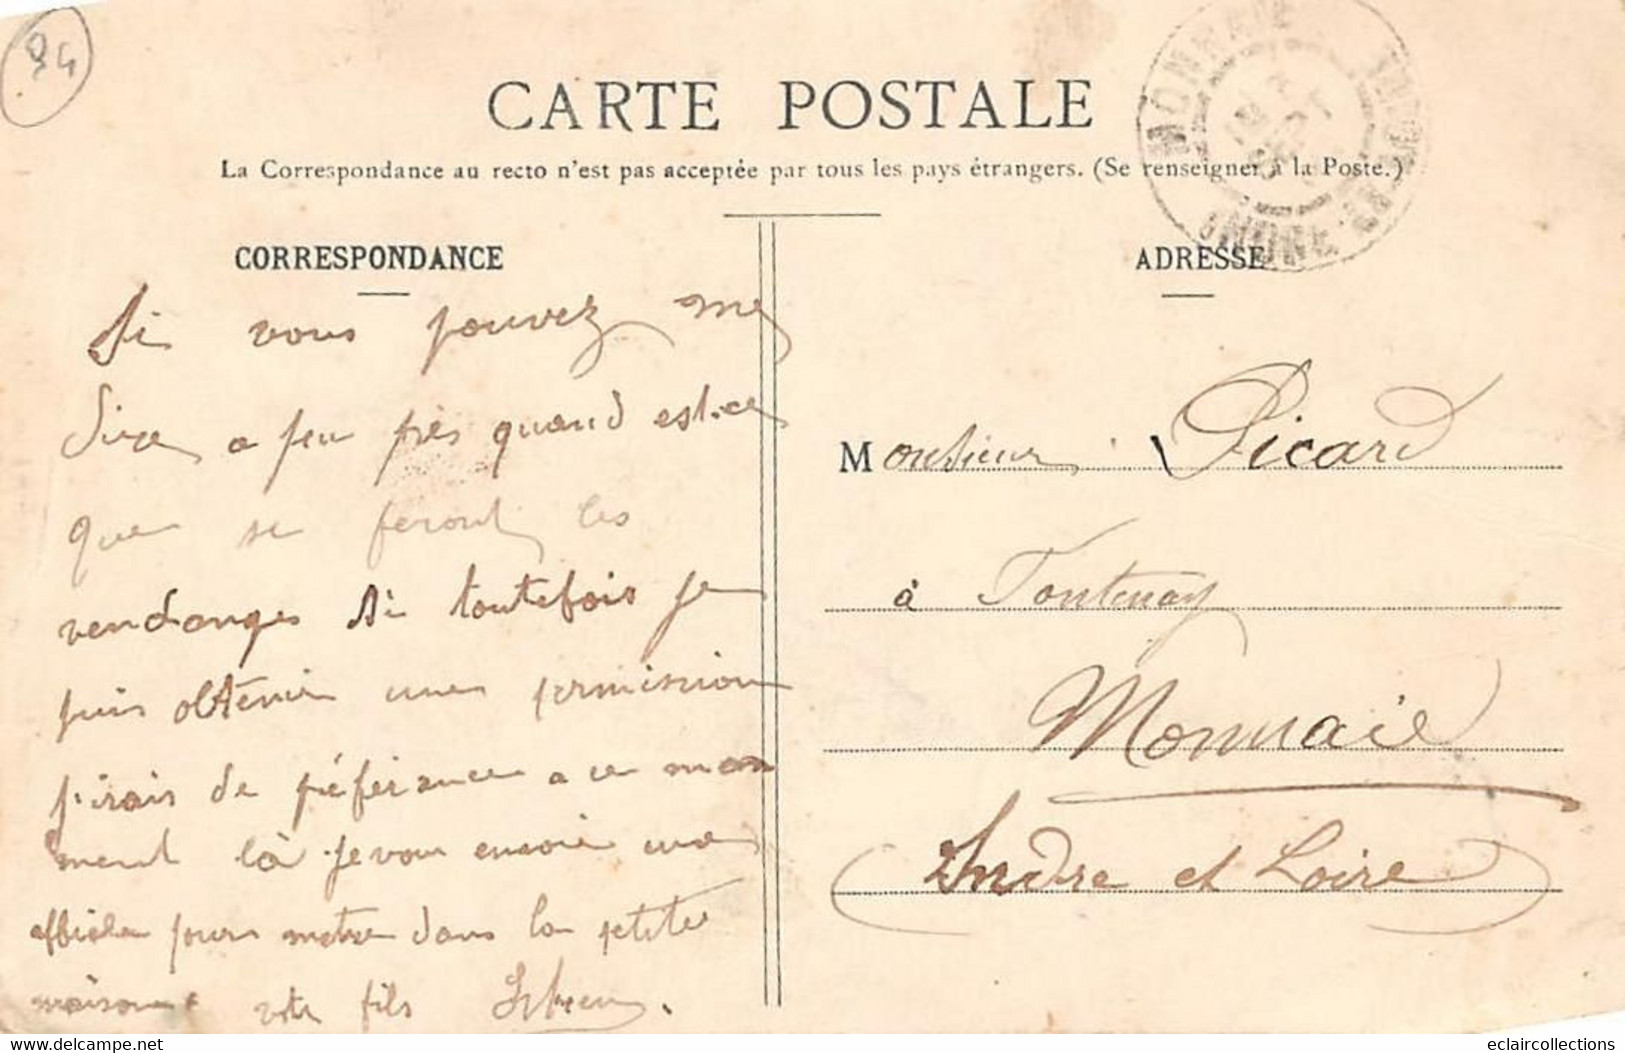 94
CARTE POSTALE
La Correspondance au recto n'est pas acceptée par tous les pays étrangers. (Se renseigner à la Poste.)
MONNAIE
INDRE-ET-LOIRE
CORRESPONDANCE
Si vous pouvez me
dire a peu près quand est-ce
que se feront les
vendanges si toutefois je
puis obtenir une permission
j'irais de préférence a ce mo
ment là je vous envoie une
affiche pour metre dans la petite
maison votre fils
ADRESSE
Monsieur Picard
à Fontenay
Monnaie
Indre et Loire
delcampe.net
eclaircollections